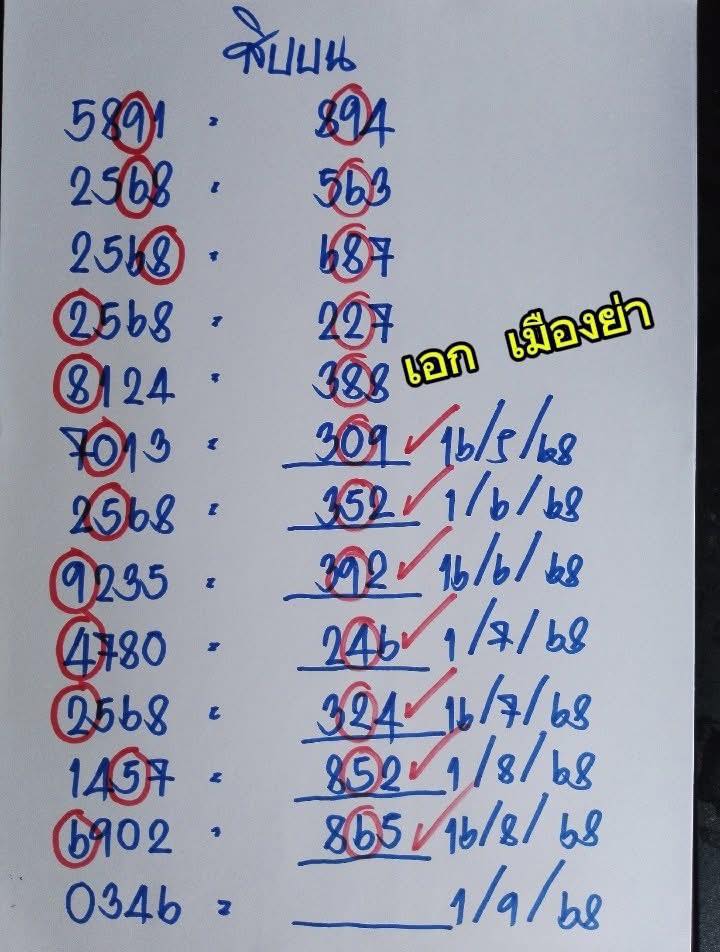 สิบบน
5891 = 894
2568 = 563
2568 = 687
2568 = 227
8124 = 388
เอก เมืองย่า
7013 = 309 ✓ 16/5/68
2568 = 352 ✓ 1/6/68
9235 = 392 ✓ 16/6/68
4780 = 246 ✓ 1/7/68
2568 = 324 ✓ 16/7/68
1457 = 852 ✓ 1/8/68
6902 = 865 ✓ 16/8/68
0346 = ______ 1/9/68